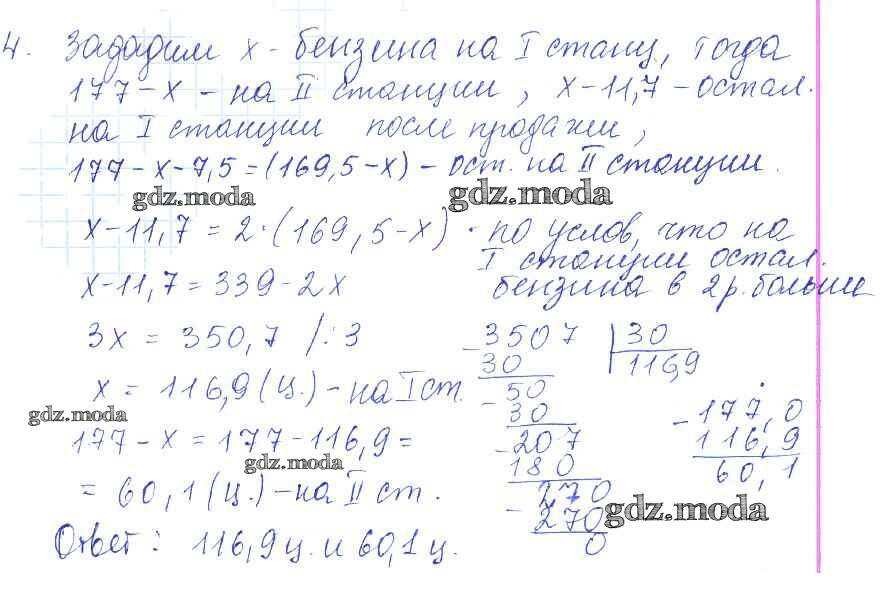 4. Зададим х - бензина на I станц., тогда
177-х - на II станции, х-11,7 - остал.
на I станции после продажи,
177-х-7,5=(169,5-х) - ост. на II станции.
gdz.moda gdz.moda
х-11,7=2·(169,5-х) · по услов, что на
I станции остал.
х-11,7=339-2х бензина в 2р. больше
3х = 350,7 /:3
х = 116,9 (ц.) - на I ст.
gdz.moda
177-х = 177-116,9 =
gdz.moda
= 60,1 (ц.) - на II ст.
Ответ: 116,9ц. и 60,1ц.
3507 30
30 116,9
- 50
30
- 207
180
270
- 270
0
- 177,0
116,9
60,1
gdz.moda